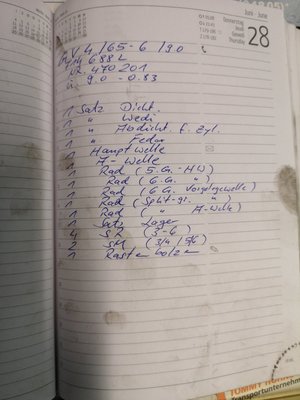 Juni · June
Donnerstag
Thursday
28
V 4/65-6/90
688 L
Nr. 470 201
i. 9.0 - 0.83
1 Satz Dicht.
1 " Wedi
1 " Abdicht. f. Zyl.
1 " Feder
1 Hauptwelle
1 A-Welle
1 Rad (5.G.-HW)
1 Rad (6.G. ")
1 Rad (6.G. Vorgelegewelle)
1 Rad (Split-gr. ")
1 Rad ( " A-Welle)
1 Satz Lager
4 SR (3-6)
2 SM (3/4 / 5/6)
1 Rastenbolzen
TOMMY
Transportunternehm